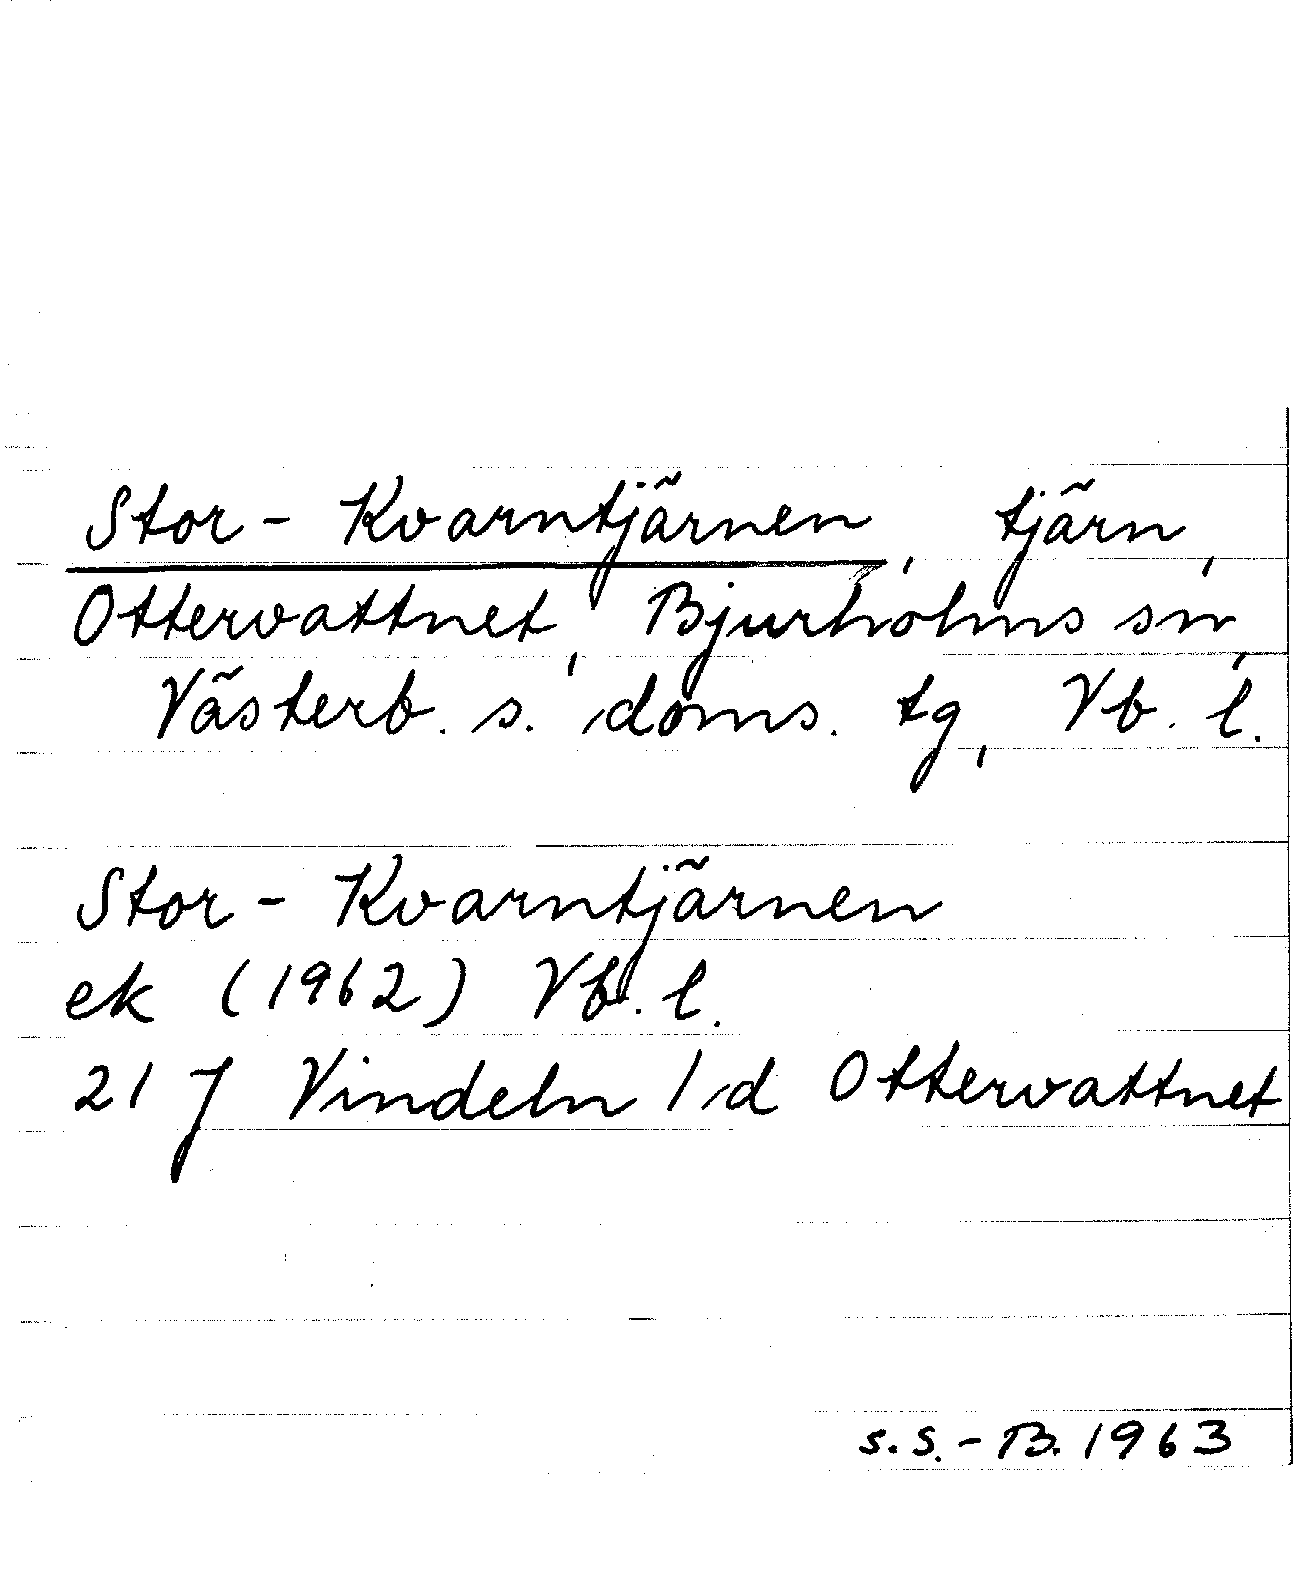 Stor-Kvarntjärnen, tjärn,
Ottervattnet, Bjurholms sn,
Västerb. s. doms. tg, Vb. l.
Stor-Kvarntjärnen
ek (1962) Vb. l.
21 J Vindeln 1 d Ottervattnet
s.s.-B. 1963